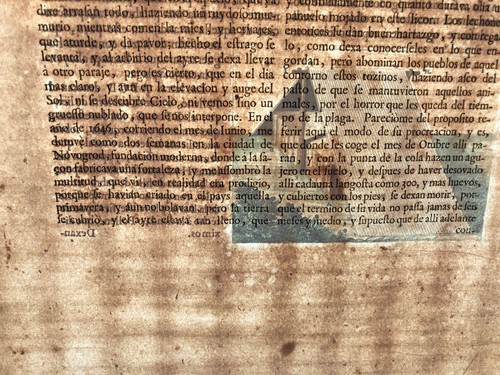 dixe arrasan todo, haziendo un ruydo
murio, mientras comen la mies, y hervajes,
que aturde, y da pavor, hecho el estrago se
levanta, y al arbitrio del ayre se dexa llevar
à otro paraje, pero es cierto, que en el dia
mas claro, y aun en la elevacion y auge del
Sol, ni se descubre Cielo, ni vemos sino un
gruesso nublado, que se nos interpone. En el
año de 1646, corriendo el mes de Junio,
dos semanas en la ciudad de
Novogrod, fundacion moderna, donde à la sa-
con fabricava una fortaleza, y me assombro la
multitud, que vi, en realidad era prodigio,
porque se havian criado en el pays aquella
primavera, y aun no bolavan, pero la tierra
se cubriò, y el ayre estava tan lleno, que
Dexan-
ximos.
quanto durara
mojado en este licor. Los
entonces se dàn buen hartazgo, y con rega-
lo, como dexa conocerseles en lo que en
gordan, pero abominan los pueblos de aquel
contorno estos rozinos, haziendo asco del
pasto de que se mantuvieron aquellos ani-
males, por el horror que les queda del tiem-
po de la plaga. Pareciome del proposito re-
ferir aqui el modo de su procreacion, y es,
que donde les coge el mes de Otubre alli pa-
ran, y con la punta de la cola hazen un agu-
jero en el suelo, y despues de haver desovado
alli cada una langosta como 300, y mas huevos,
y cubiertos con los pies, se dexan morir, por-
que el termino de su vida no passa jamas de seis
meses y medio, y supuesto que de alli adelante
con-